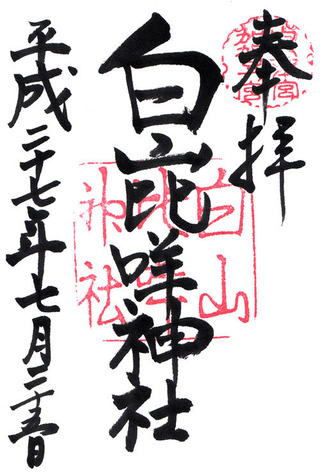 奉拝
白山比咩神社
平成二十七年七月二十五日
白山
比咩
神社